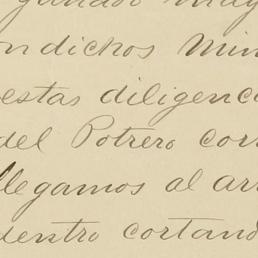 ndichos Min
estas diligenc
del Potrero cor
llegamos al ar
dentro cortand